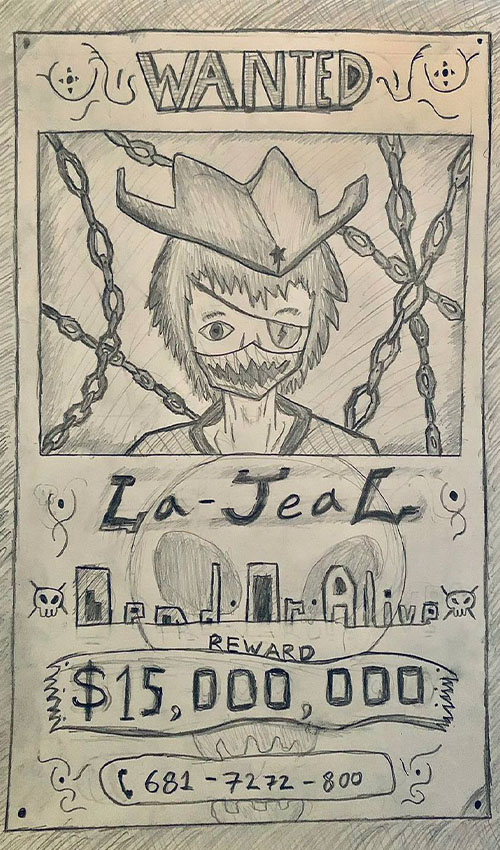 WANTED
La-JeaL
Dead.Or.Alive
REWARD
$15,000,000
681-7272-800